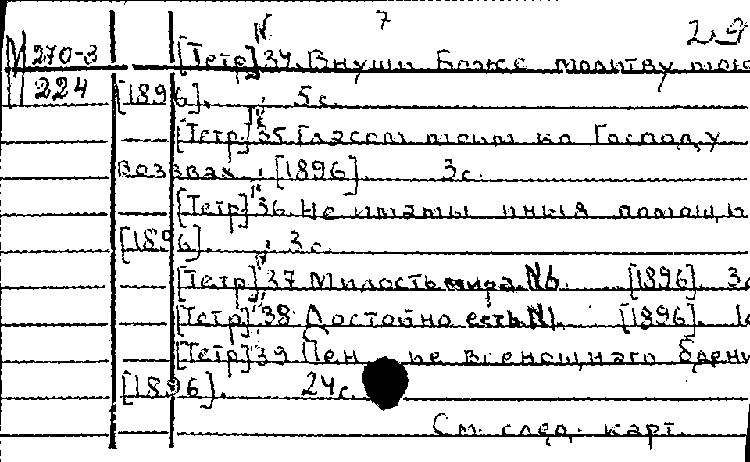 7
М 270-3 [Тетр] 34. Внуши Боже молитву мою
224 [1896]. 5 с.
[Тетр] 35 Гласом моим ко Господу
воззвах. [1896]. 3 с.
[Тетр] 36. Не имамы иныя помощи
[1896]. 3 с.
[Тетр] 37 Милость мира №6. [1896]. 3с
[Тетр] 38 Достойно есть №1. [1896]. 1с
[Тетр] 39 Пен ье всенощнаго бдени
[1896]. 24с.
См. след. карт.